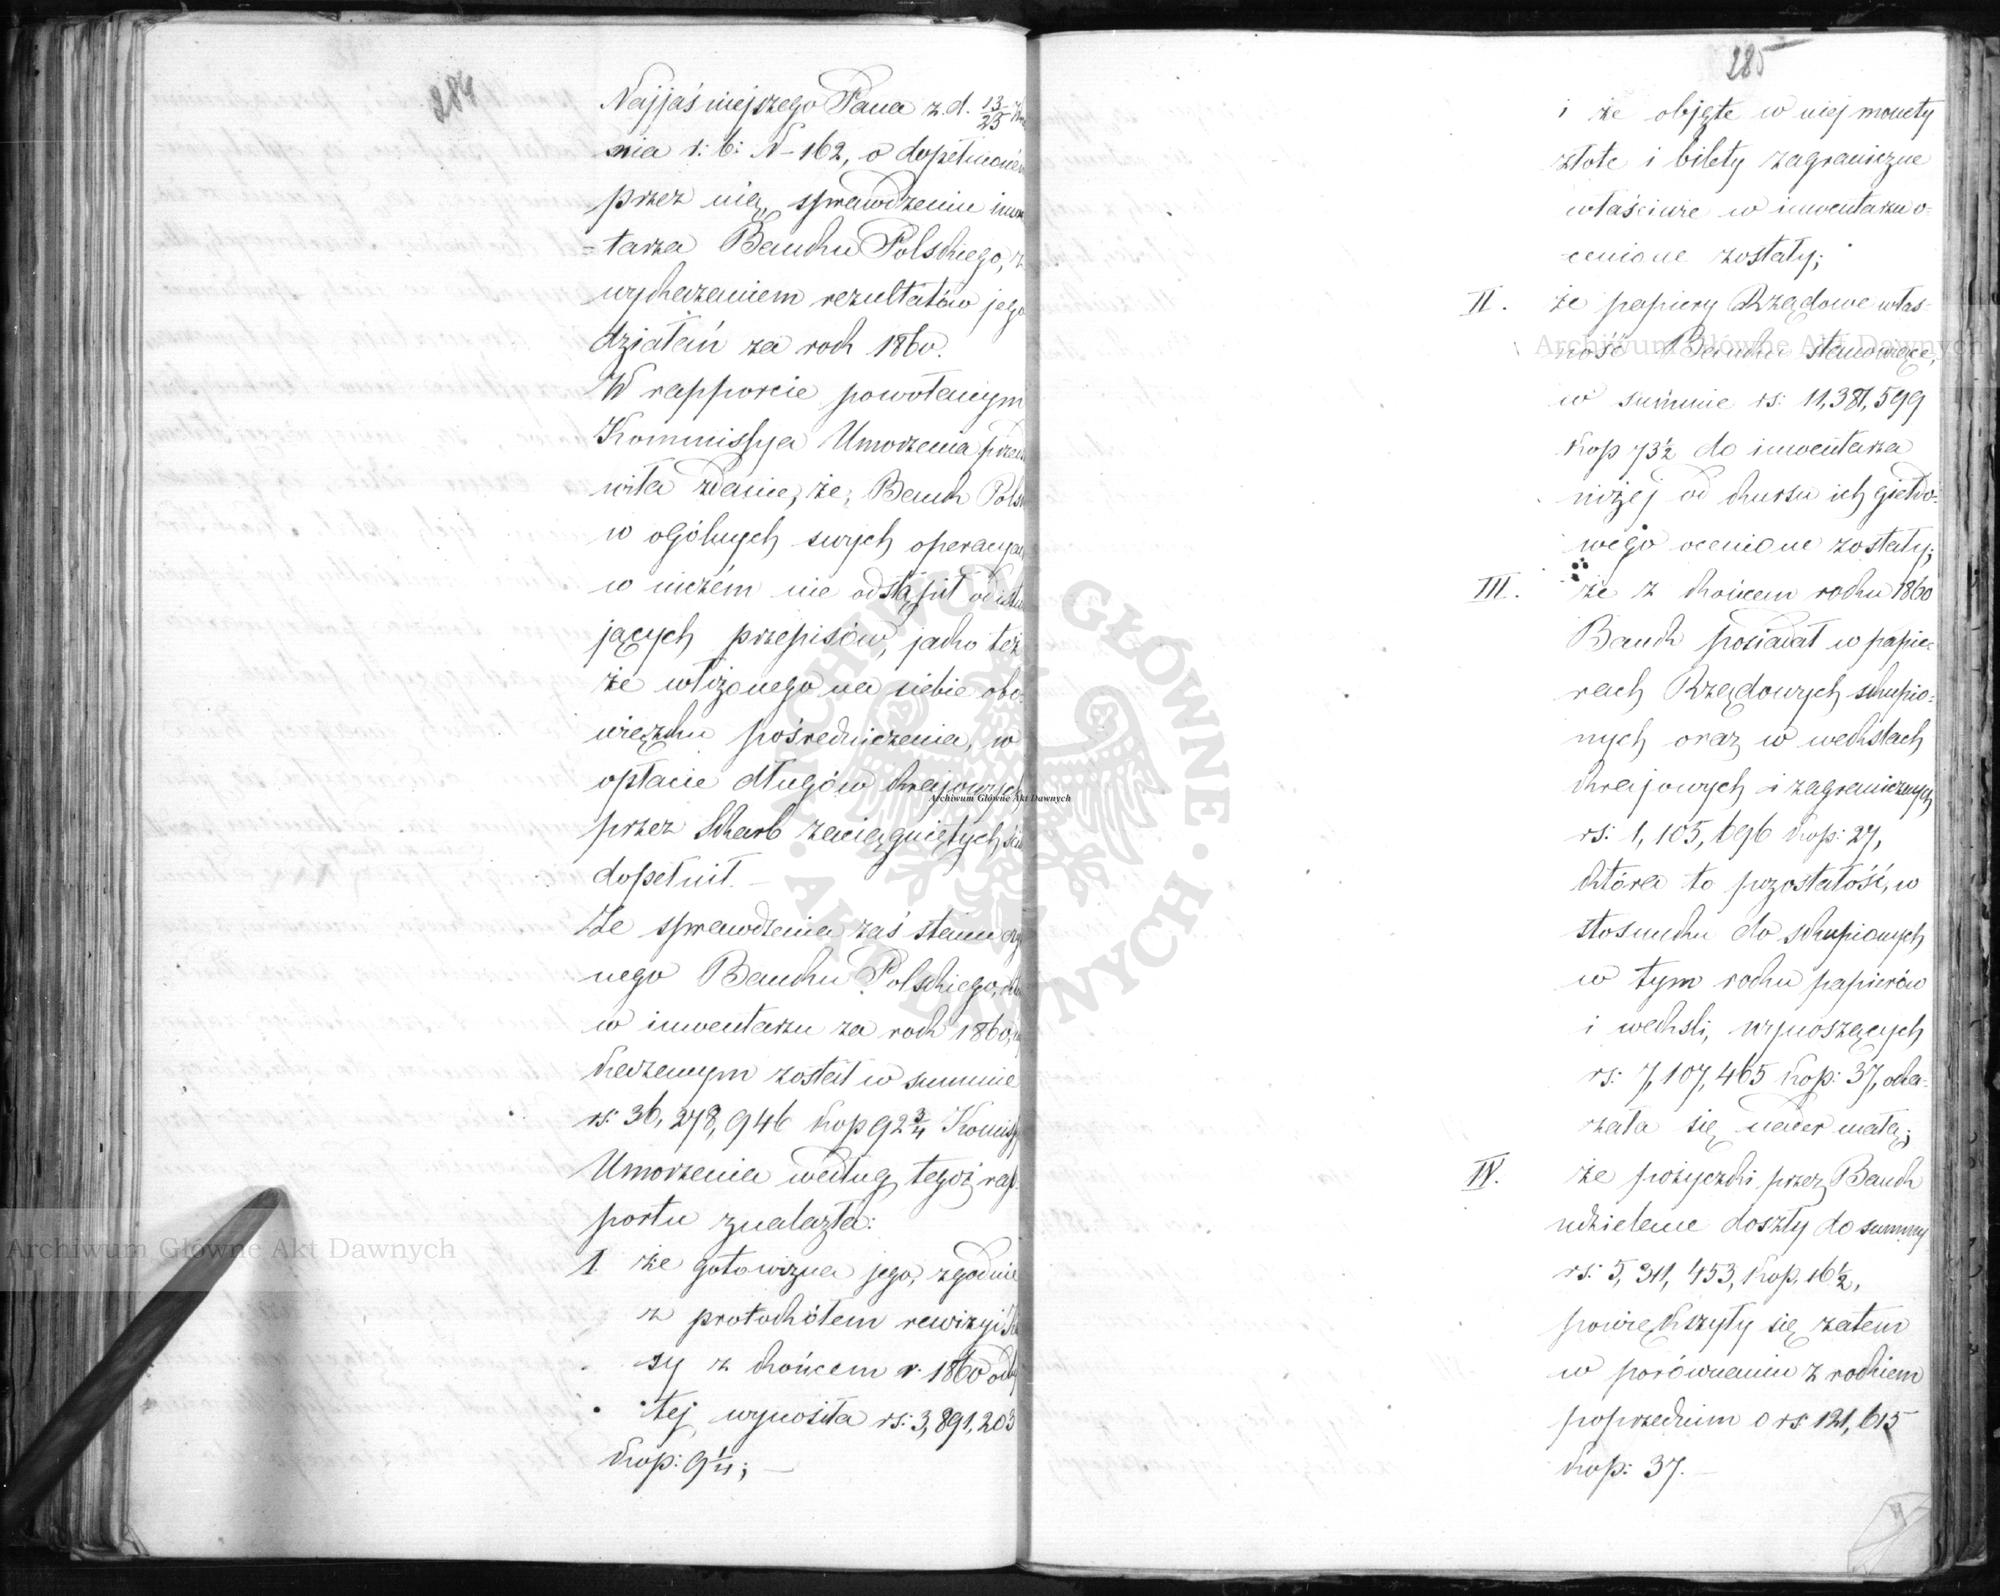 284
Najjaśniejszego Pana z. d. 13/25
nia r: b: N 162, o dopełnioném
przez nią sprawdzeniu inwen
=tarza Banku Polskiego, z
wykazaniem rezultatów jego
działań za rok 1860.
W rapporcie powołanym
Kommissya Umorzenia
wiła zdanie, że, Bank Pols
w ogólnych swych operacyach
w niczém nie odstąpił od istnie
jących przepisów, jako też
że włożonego na siebie obo-
wiązku pośredniczenia, w
opłacie długów krajowych
przez Skarb zaciągniętych
dopełnił. —
Ze sprawdzenia zaś stanu czyn
nego Banku Polskiego,
w inwentarzu za rok 1860,
kazanym został w summie
rs: 36,278,946 kop 92 3/4 Komissy
Umorzenia według tegoż rap-
portu znalazła:
1 że gotowizna jego, zgodnie
z protokółem rewizyi Ka
sy z końcem r. 1860 odby
tej wynosiła rs: 3,891,203
kop: 9 1/4; —
285
i że objęte w niej monety
złote i bilety zagraniczne
właściwie w inwentarzu o-
cenione zostały;
II. że papiery Rządowe włas-
ność Banku stanowiące,
w summie rs: 11,381,599
kop 73 1/2 do inwentarza
niżej od kursu ich giełdo-
wego ocenione zostały;
III. że z końcem roku 1860
Bank posiadał w papie-
rach Rządowych skupio-
nych oraz w wekslach
krajowych i zagranicznych
rs: 1,105,696 kop: 27,
która to pozostałość, w
stosunku do skupionych
w tym roku papierów
i weksli, wynoszących
rs: 7,107,465 kop: 37, oka-
zała się nader małą;
IV. że pożyczki przez Bank
udzielone doszły do summy
rs: 5,311,453, kop. 16 1/2,
powiększyły się zatem
w porównaniu z rokiem
poprzednim o rs 121,615
kop: 37. —
Archiwum Główne Akt Dawnych
Archiwum Główne Akt Dawnych
Archiwum Główne Akt Dawnych
ARCHIWUM GŁÓWNE AKT DAWNYCH